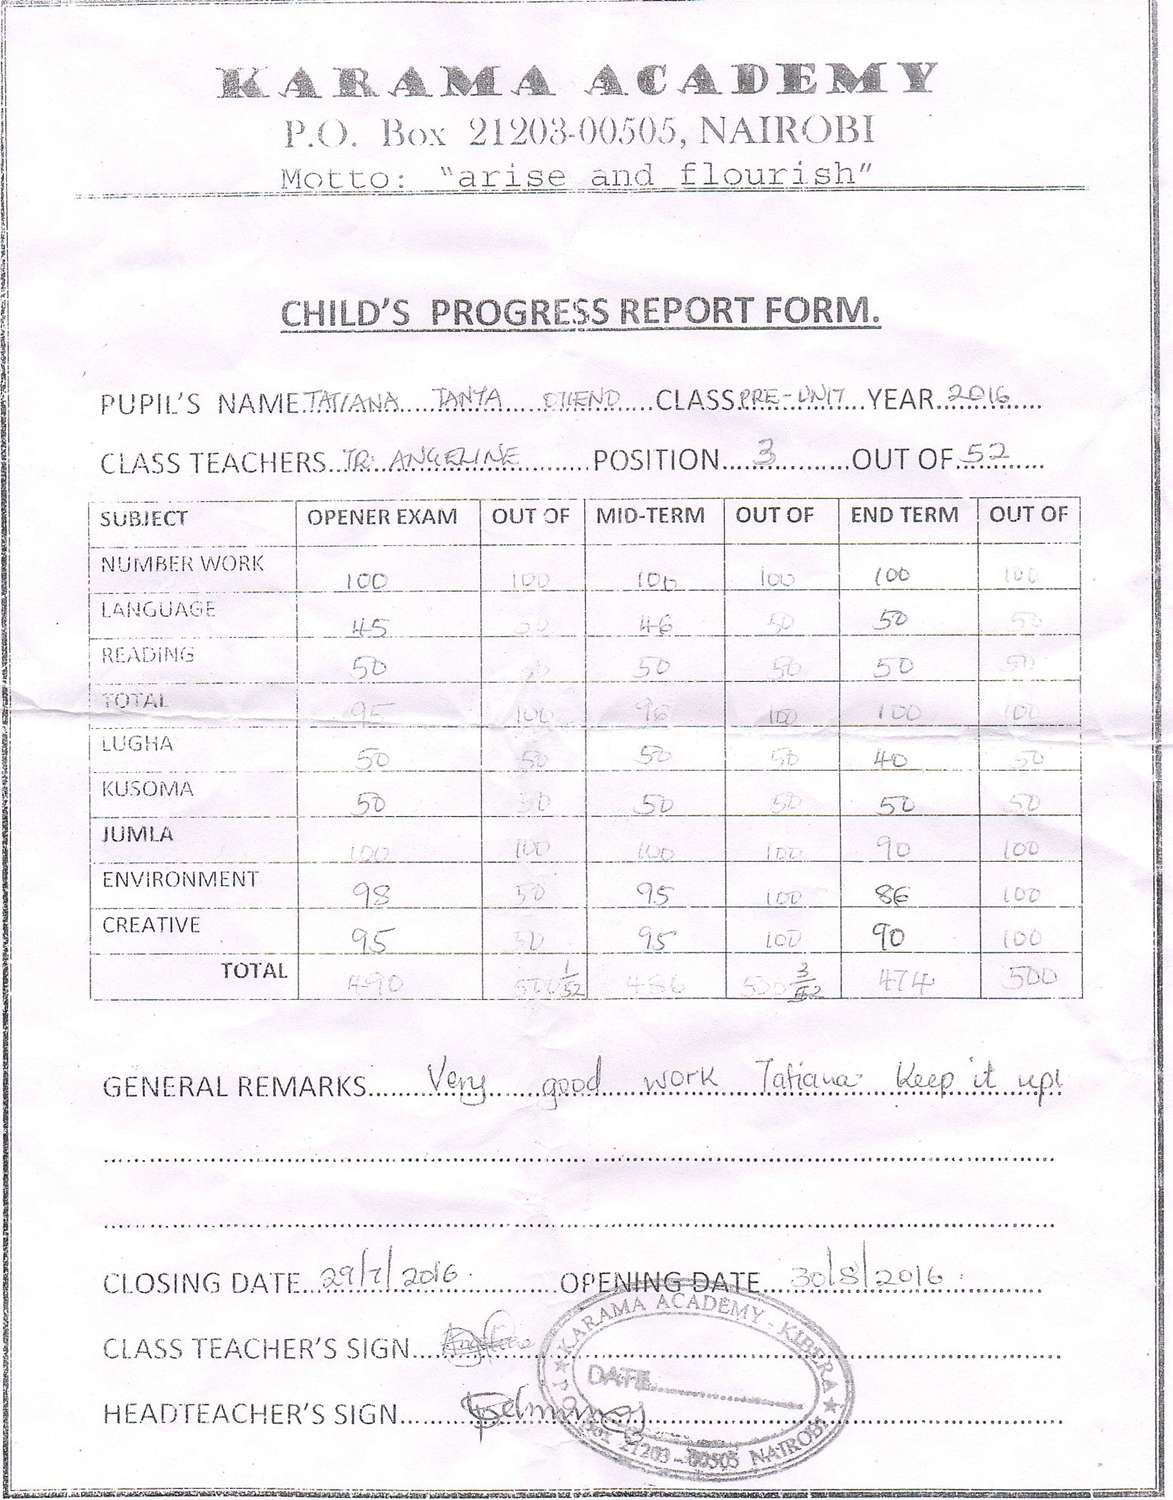 KARAMA ACADEMY
P.O. Box 21203-00505, NAIROBI
Motto: "arise and flourish"
CHILD'S PROGRESS REPORT FORM.
PUPIL'S NAME TATIANA TANYA CLASS PRE-UNIT YEAR 2016
CLASS TEACHERS TR. ANGELINE POSITION 3 OUT OF 52
SUBJECT OPENER EXAM OUT OF MID-TERM OUT OF END TERM OUT OF
NUMBER WORK 100 100 100 100 100 100
LANGUAGE 45 50 46 50 50 50
READING 50 50 50 50 50 50
TOTAL 95 100 96 100 100 100
LUGHA 50 50 50 50 40 50
KUSOMA 50 50 50 50 50 50
JUMLA 100 100 100 100 90 100
ENVIRONMENT 98 50 95 100 86 100
CREATIVE 95 50 95 100 90 100
TOTAL 490 500 1/52 486 500 3/52 474 500
GENERAL REMARKS Very good work Tatiana. Keep it up!
CLOSING DATE 29/7/2016. OPENING DATE 30/8/2016.
CLASS TEACHER'S SIGN
HEADTEACHER'S SIGN
KARAMA ACADEMY - KIBERA
DATE
P.O. BOX 21203 - 00505 NAIROBI